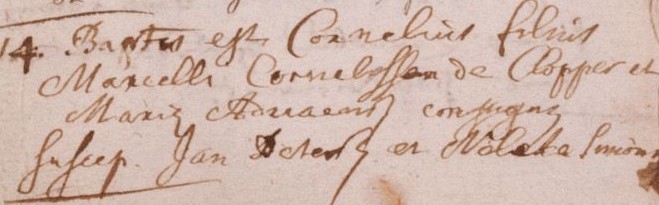 14. Baptus est Cornelius filius
Marcelli Cornelissen de Clopper et
Mariæ Adriaens conjugum
suscep. Jan Peters et Simons